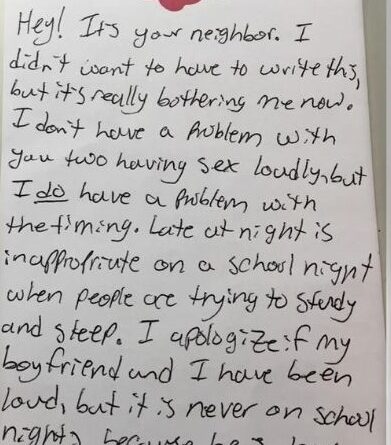 Hey! It's your neighbor. I
didn't want to have to write this,
but it's really bothering me now.
I don't have a problem with
you two having sex loudly, but
I do have a problem with
the timing. Late at night is
inappropriate on a school night
when people are trying to study
and sleep. I apologize if my
boyfriend and I have been
loud, but it is never on school
nights because he is